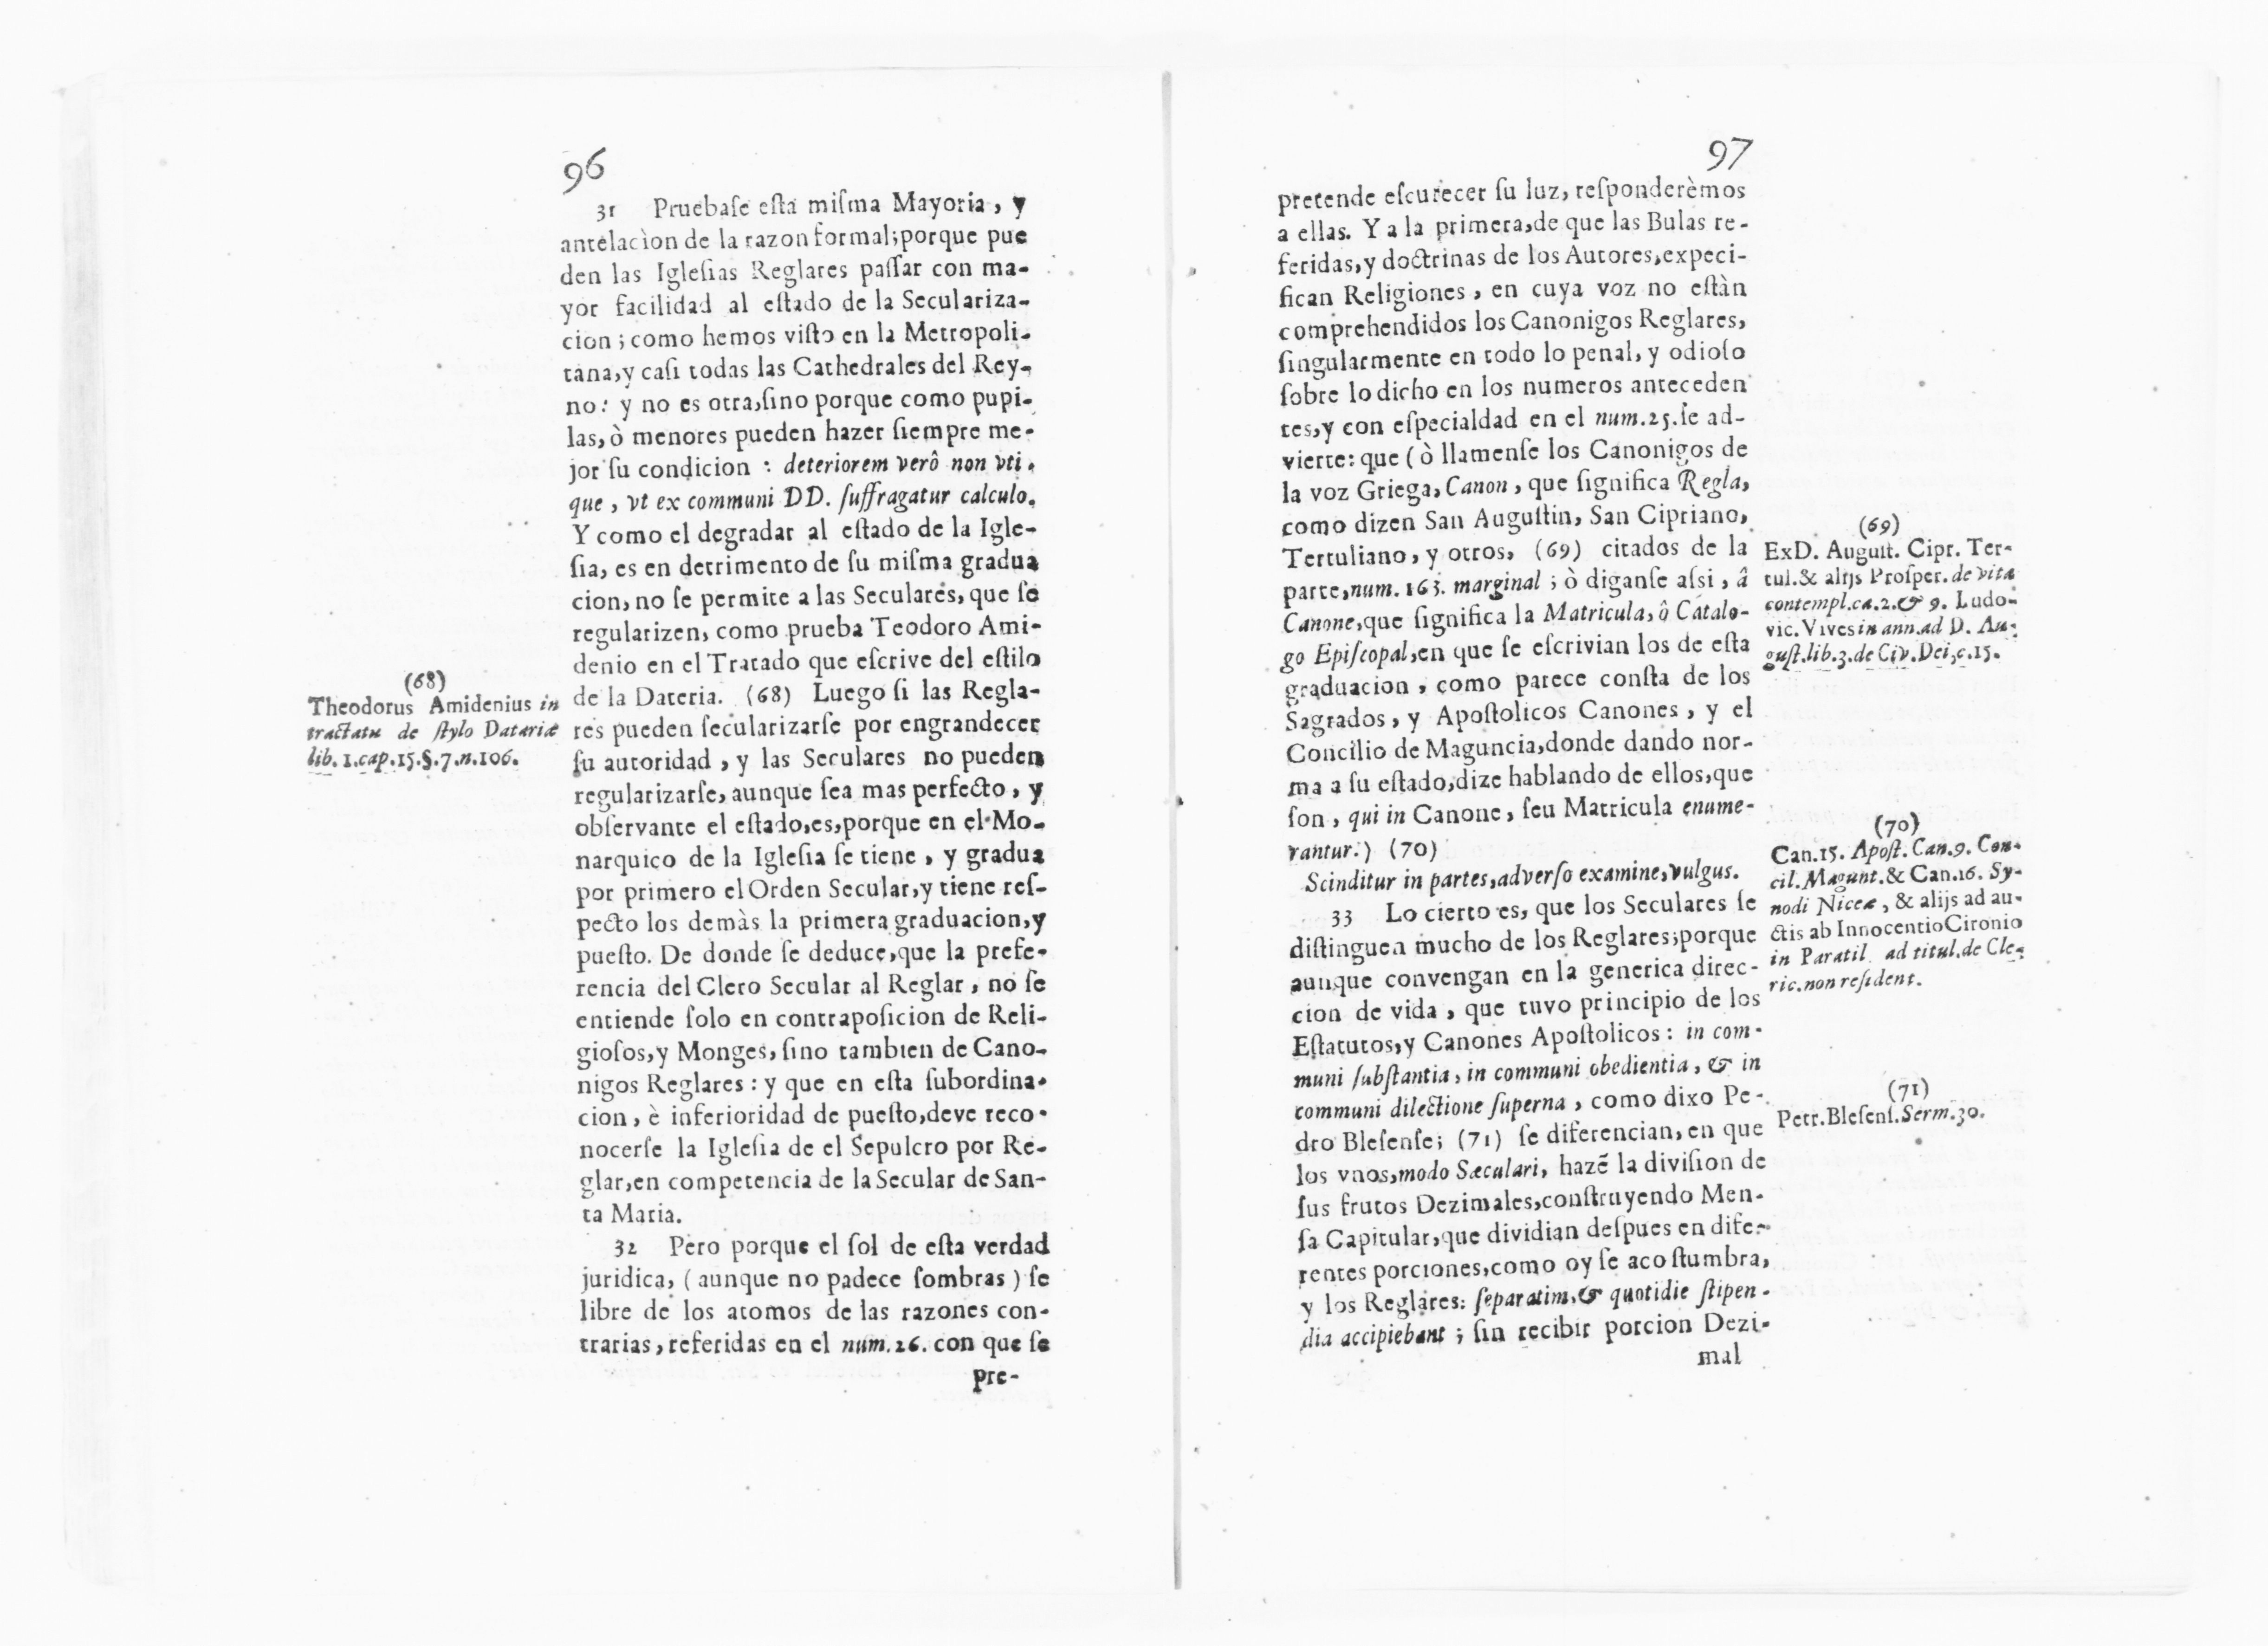 96
31 Pruebaſe eſta miſma Mayoria, y
antelaciòn de la razon formal; porque pue
den las Igleſias Reglares paſſar con ma-
yor facilidad al eſtado de la Seculariza-
cion; como hemos viſto en la Metropoli-
tana, y caſi todas las Cathedrales del Rey-
no: y no es otra, ſino porque como pupi-
las, ò menores pueden hazer ſiempre me-
jor ſu condicion : deteriorem verô non vti-
que, vt ex communi DD. ſuffragatur calculo.
Y como el degradar al eſtado de la Igle-
ſia, es en detrimento de ſu miſma gradua
cion, no ſe permite a las Seculares, que ſe
regularizen, como prueba Teodoro Ami-
denio en el Tratado que eſcrive del eſtilo
de la Dateria. (68) Luego ſi las Regla-
res pueden ſecularizarſe por engrandecer
ſu autoridad, y las Seculares no pueden
regularizarſe, aunque ſea mas perfecto, y
obſervante el eſtado, es, porque en el Mo-
narquico de la Igleſia ſe tiene, y gradua
por primero el Orden Secular, y tiene reſ-
pecto los demàs la primera graduacion, y
pueſto. De donde ſe deduce, que la prefe-
rencia del Clero Secular al Reglar, no ſe
entiende ſolo en contrapoſicion de Reli-
gioſos, y Monges, ſino tambien de Cano-
nigos Reglares: y que en eſta ſubordina-
cion, è inferioridad de pueſto, deve reco-
nocerſe la Igleſia de el Sepulcro por Re-
glar, en competencia de la Secular de San-
ta Maria.
32 Pero porque el ſol de eſta verdad
juridica, (aunque no padece ſombras) ſe
libre de los atomos de las razones con-
trarias, referidas en el num. 26. con que ſe
pre-
(68)
Theodorus Amidenius in
tractatu de ſtylo Datariæ
lib. 1. cap. 15. §. 7. n. 106.
97
pretende eſcurecer ſu luz, reſponderèmos
a ellas. Y a la primera, de que las Bulas re-
feridas, y doctrinas de los Autores, expeci-
fican Religiones, en cuya voz no eſtàn
comprehendidos los Canonigos Reglares,
ſingularmente en todo lo penal, y odioſo
ſobre lo dicho en los numeros anteceden
tes, y con eſpecialdad en el num. 25. ſe ad-
vierte: que (ò llamenſe los Canonigos de
la voz Griega, Canon, que ſignifica Regla,
como dizen San Auguſtin, San Cipriano,
Tertuliano, y otros, (69) citados de la
parte, num. 163. marginal; ò diganſe aſsi, â
Canone, que ſignifica la Matricula, ô Catalo-
go Epiſcopal, en que ſe eſcrivian los de eſta
graduacion, como parece conſta de los
Sagrados, y Apoſtolicos Canones, y el
Concilio de Maguncia, donde dando nor-
ma a ſu eſtado, dize hablando de ellos, que
ſon, qui in Canone, ſeu Matricula enume-
rantur.) (70)
Scinditur in partes, adverſo examine, vulgus.
33 Lo cierto es, que los Seculares ſe
diſtinguen mucho de los Reglares; porque
aunque convengan en la generica direc-
cion de vida, que tuvo principio de los
Eſtatutos, y Canones Apoſtolicos: in com-
muni ſubſtantia, in communi obedientia, & in
communi dilectione ſuperna, como dixo Pe-
dro Bleſenſe; (71) ſe diferencian, en que
los vnos, modo Sæculari, hazẽ la diviſion de
ſus frutos Dezimales, conſtruyendo Men-
ſa Capitular, que dividian deſpues en dife-
rentes porciones, como oy ſe acoſtumbra,
y los Reglares: ſeparatim, & quotidie ſtipen-
dia accipiebant; ſin recibir porcion Dezi-
mal
(69)
Ex D. Auguſt. Cipr. Ter-
tul. & alijs Proſper. de vita
contempl. ca. 2. & 9. Ludo-
vic. Vives in ann. ad D. Au-
guſt. lib. 3. de Civ. Dei, c. 15.
(70)
Can. 15. Apoſt. Can. 9. Con-
cil. Magunt. & Can. 16. Sy-
nodi Niceæ, & alijs ad au-
ctis ab Innocentio Cironio
in Paratil. ad titul. de Cle-
ric. non reſident.
(71)
Petr. Bleſenſ. Serm. 30.